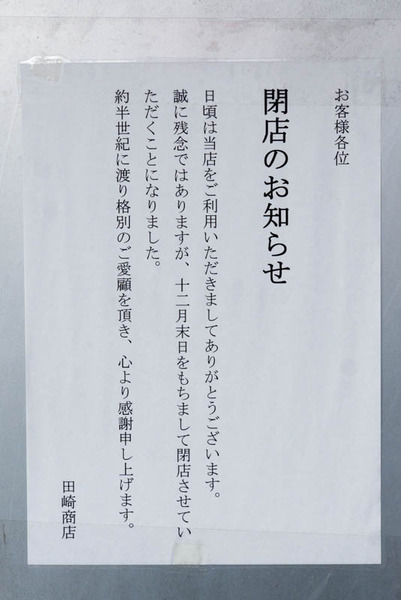 お客様各位
閉店のお知らせ
日頃は当店をご利用いただきましてありがとうございます。
誠に残念ではありますが、十二月末日をもちまして閉店させてい
ただくことになりました。
約半世紀に渡り格別のご愛顧を頂き、心より感謝申し上げます。
田崎商店